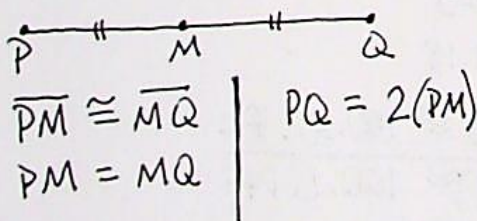 P M Q
PM ≅ MQ
PM = MQ
PQ = 2(PM)